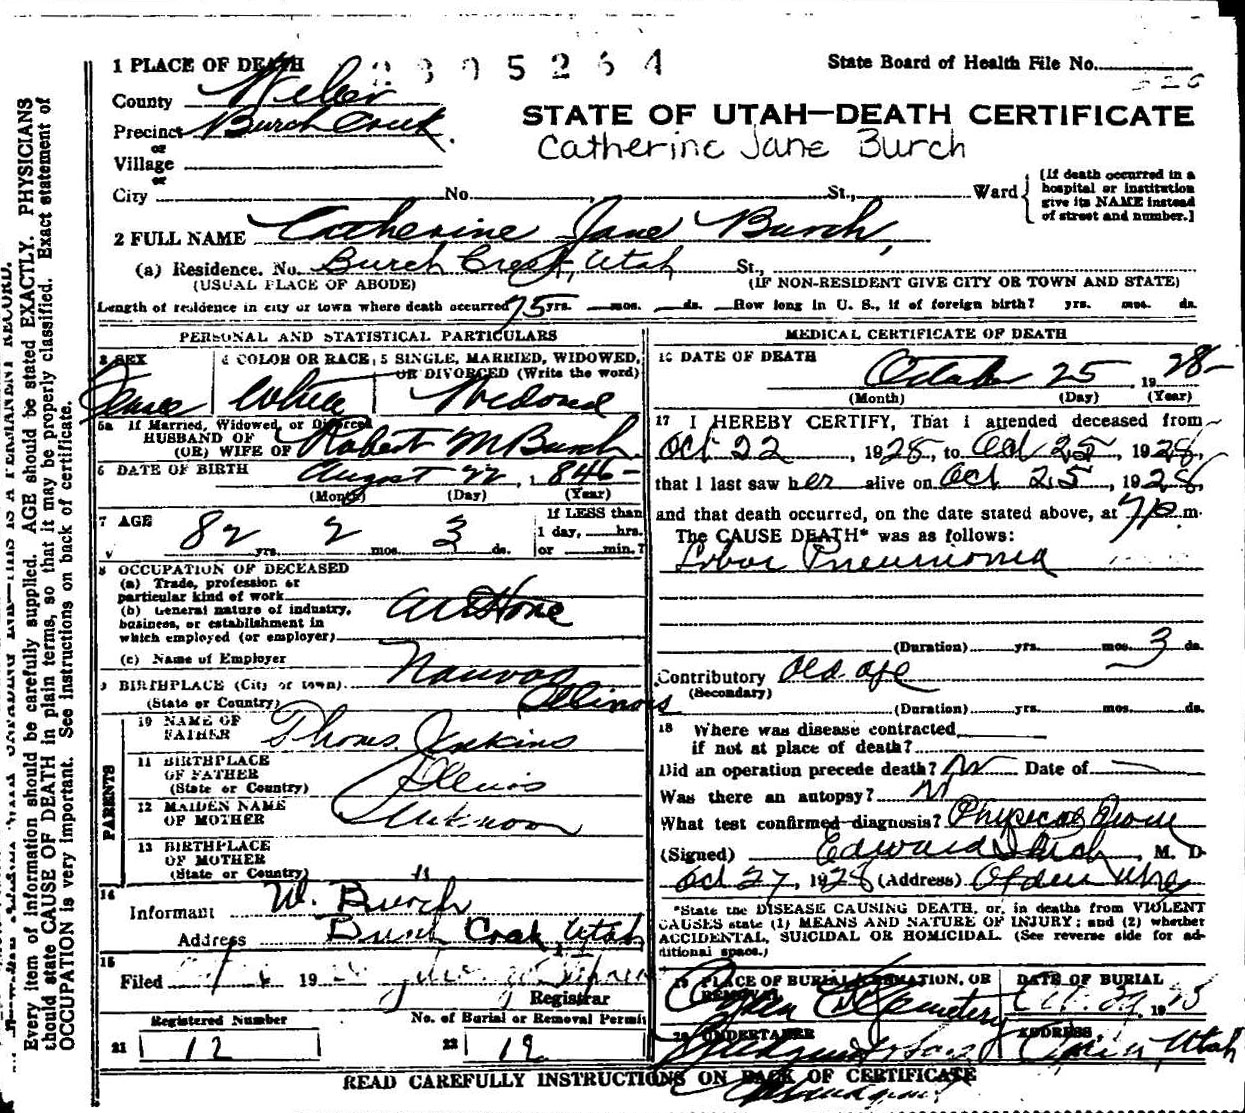 1 PLACE OF DEATH 2305264
State Board of Health File No.
County Weber
STATE OF UTAH—DEATH CERTIFICATE
Precinct Burch Creek.
or
Catherine Jane Burch
Village
or
City No. St., Ward
[If death occurred in a hospital or institution give its NAME instead of street and number.]
2 FULL NAME Catherine Jane Burch,
(a) Residence. No. Burch Creek, Utah St.,
(USUAL PLACE OF ABODE) (IF NON-RESIDENT GIVE CITY OR TOWN AND STATE)
Length of residence in city or town where death occurred 75 yrs. mos. ds. How long in U. S., if of foreign birth? yrs. mos. ds.
PERSONAL AND STATISTICAL PARTICULARS
3 SEX
4 COLOR OR RACE
5 SINGLE, MARRIED, WIDOWED,
OR DIVORCED (Write the word)
White
5a If Married, Widowed, or Divorced
HUSBAND OF
(OR) WIFE OF Robert M Burch
6 DATE OF BIRTH August 22, 1846
(Month) (Day) (Year)
7 AGE 82 yrs. 2 mos. 3 ds.
If LESS than
1 day, hrs.
or min.?
8 OCCUPATION OF DECEASED
(a) Trade, profession or
particular kind of work
(b) General nature of industry,
business, or establishment in
which employed (or employer)
At Home
(c) Name of Employer
9 BIRTHPLACE (City or town) Nauvoo
(State or Country) Illinois
PARENTS
10 NAME OF
FATHER Thomas Jenkins
11 BIRTHPLACE
OF FATHER
(State or Country) Illinois
12 MAIDEN NAME
OF MOTHER Unknown
13 BIRTHPLACE
OF MOTHER
(State or Country) "
14
Informant W. Burch
Address Burch Creek, Utah
15
Filed 19
Registrar
Registered Number
No. of Burial or Removal Permit
21 12
22 12
MEDICAL CERTIFICATE OF DEATH
16 DATE OF DEATH
October 25, 1928
(Month) (Day) (Year)
17 I HEREBY CERTIFY, That I attended deceased from
Oct 22, 1928, to Oct 25, 1928,
that I last saw her alive on Oct 25, 1928,
and that death occurred, on the date stated above, at 7 p m.
The CAUSE DEATH* was as follows:
Lobar Pneumonia
(Duration) yrs. mos. 3 ds.
Contributory Old age
(Secondary)
(Duration) yrs. mos. ds.
18 Where was disease contracted
if not at place of death?
Did an operation precede death? No Date of
Was there an autopsy? N
What test confirmed diagnosis? Physical
(Signed) Edward , M. D.
Oct 27, 1928 (Address) Ogden Utah
*State the DISEASE CAUSING DEATH, or, in deaths from VIOLENT
CAUSES state (1) MEANS AND NATURE OF INJURY; and (2) whether
ACCIDENTAL, SUICIDAL OR HOMICIDAL. (See reverse side for ad-
ditional space.)
19 PLACE OF BURIAL, CREMATION, OR
REMOVAL
DATE OF BURIAL
Ogden Cemetery
20 UNDERTAKER
ADDRESS
Ogden, Utah
READ CAREFULLY INSTRUCTIONS ON BACK OF CERTIFICATE
Every item of information should be carefully supplied. AGE should be stated EXACTLY. PHYSICIANS
should state CAUSE OF DEATH in plain terms, so that it may be properly classified. Exact statement of
OCCUPATION is very important. See instructions on back of certificate.